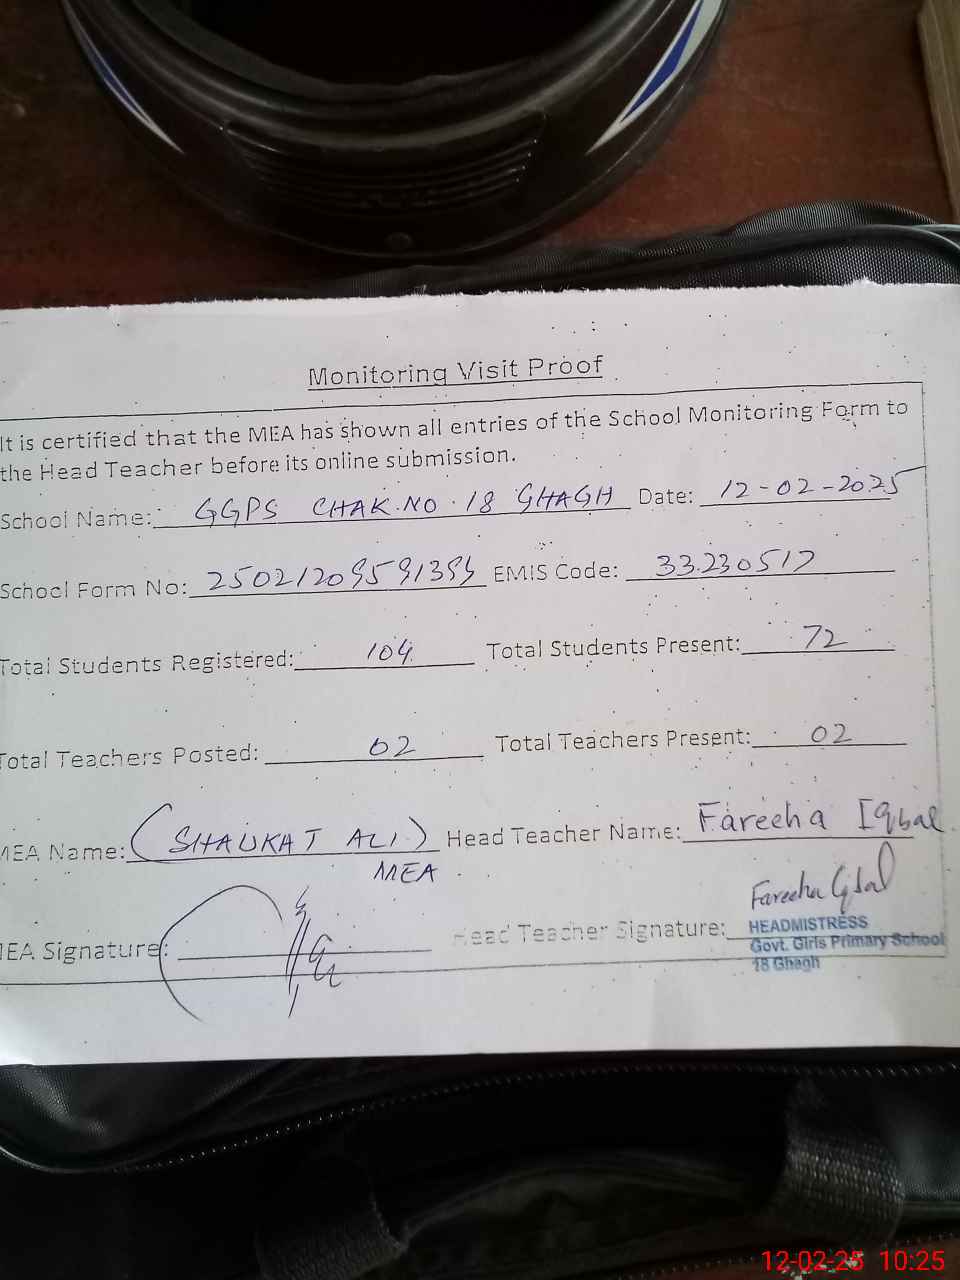 Monitoring Visit Proof
It is certified that the MEA has shown all entries of the School Monitoring Form to
the Head Teacher before its online submission.
School Name: GGPS CHAK.NO.18 GHAGH Date: 12-02-2025
School Form No: EMIS Code: 33230517
Total Students Registered: 104 Total Students Present: 72
Total Teachers Posted: 02 Total Teachers Present: 02
MEA Name: (SHAUKAT ALI) Head Teacher Name: Fareeha Iqbal
MEA
MEA Signature: Head Teacher Signature: Fareeha Iqbal
HEADMISTRESS
Govt. Girls Primary School
18 Ghagh
12-02-25 10:25